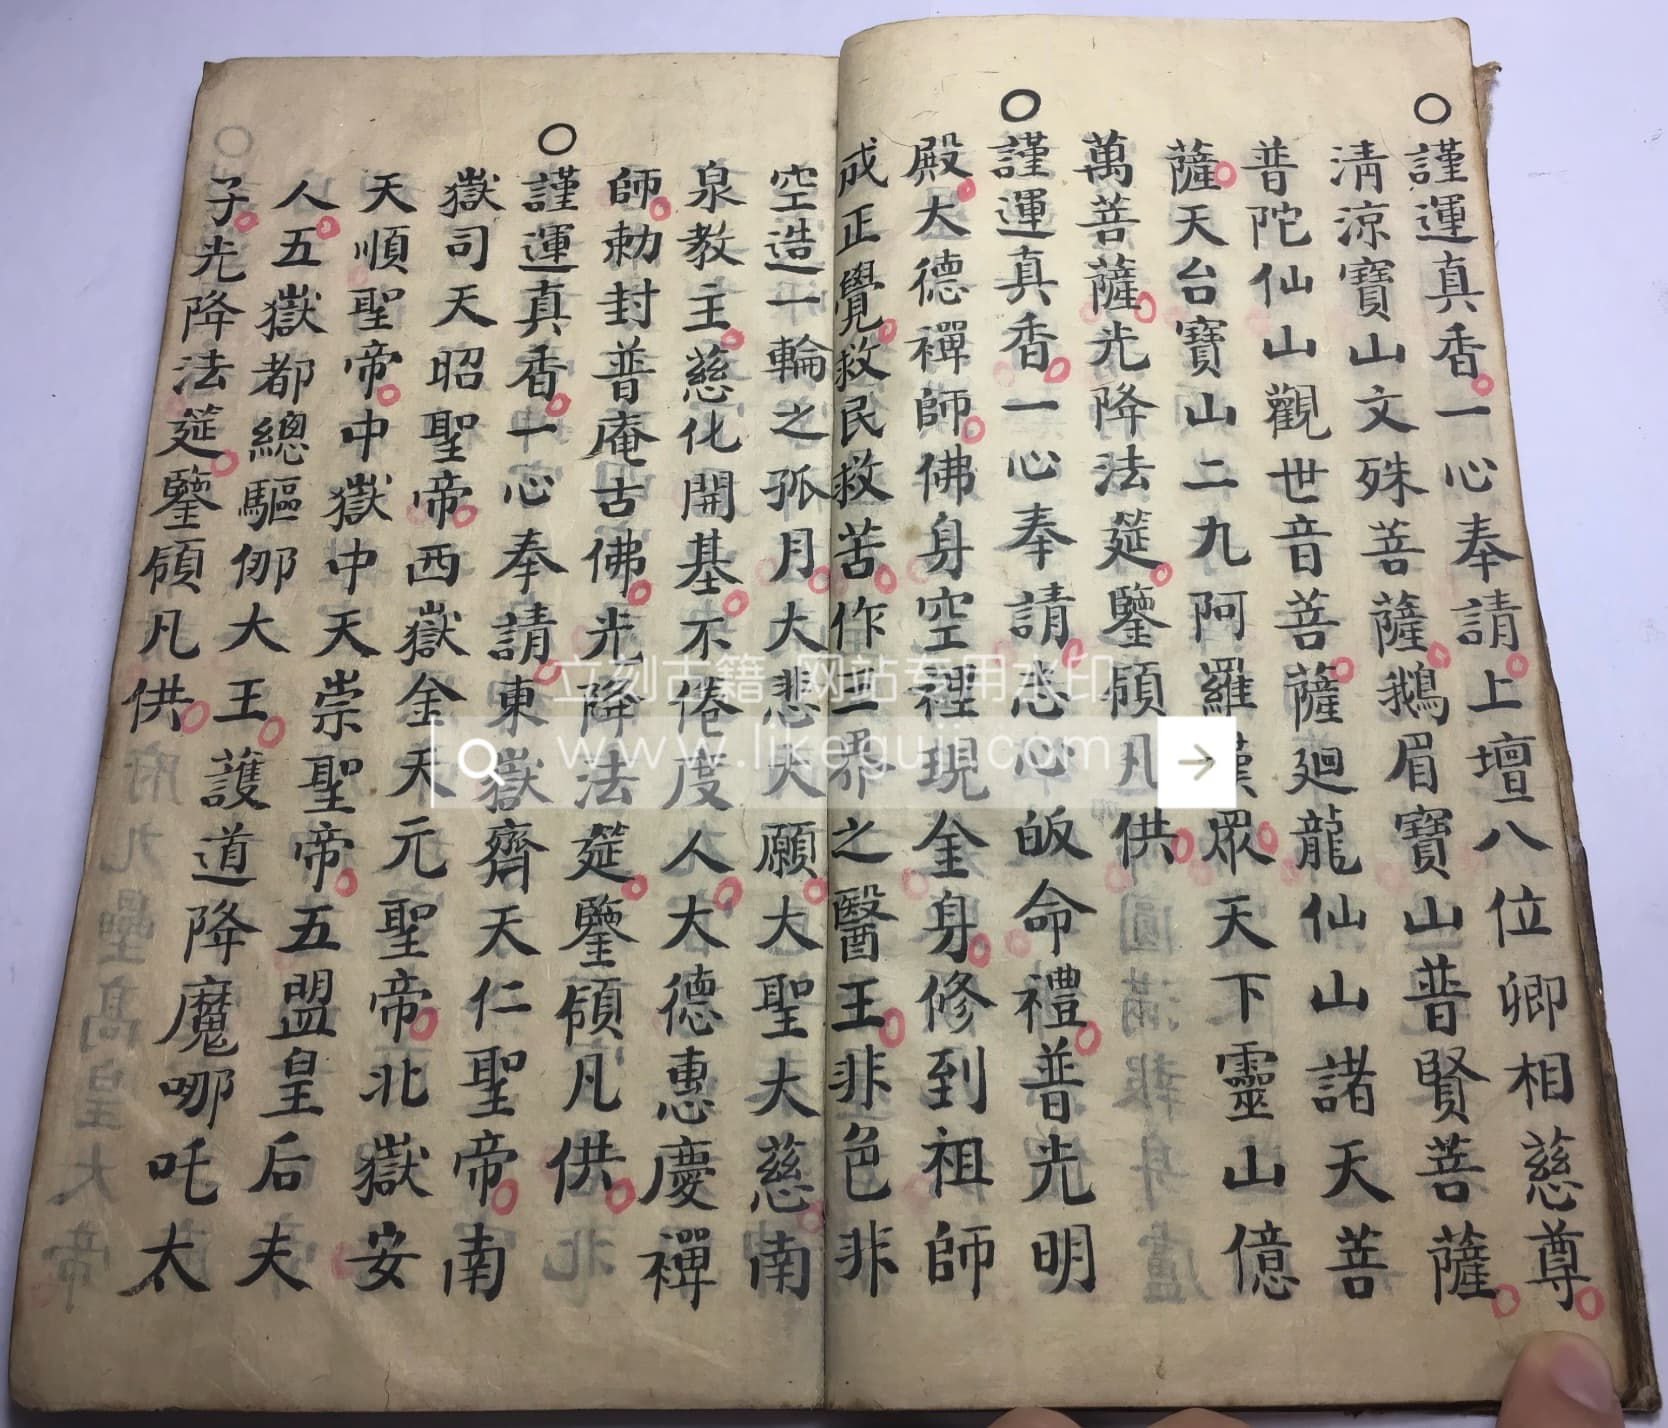 ○謹運真香一心奉請上壇八位卿相慈尊
清涼寶山文殊菩薩鵝眉寶山普賢菩薩
普陀仙山觀世音菩薩廻龍仙山諸天菩
薩天台寶山二九阿羅漢眾天下靈山億
萬菩薩光降法筵鑒領凡供
○謹運真香一心奉請志心皈命禮普光明
殿大德禪師佛身空裡現金身修到祖師
成正覺救民救苦作世界之醫王非色非
空造一輪之孤月大悲大願大聖大慈南
泉教主慈化開基不倦度人大德惠慶禪
師勅封普庵古佛光降法筵鑒領凡供
○謹運真香一心奉請東嶽齊天仁聖帝南
嶽司天昭聖帝西嶽金天元聖帝北嶽安
天順聖帝中嶽中天崇聖帝五盟皇后夫
人五嶽都總驅邪大王護道降魔哪吒太
子光降法筵鑒領凡供
立刻古籍 网站专用水印
www.likeguji.com